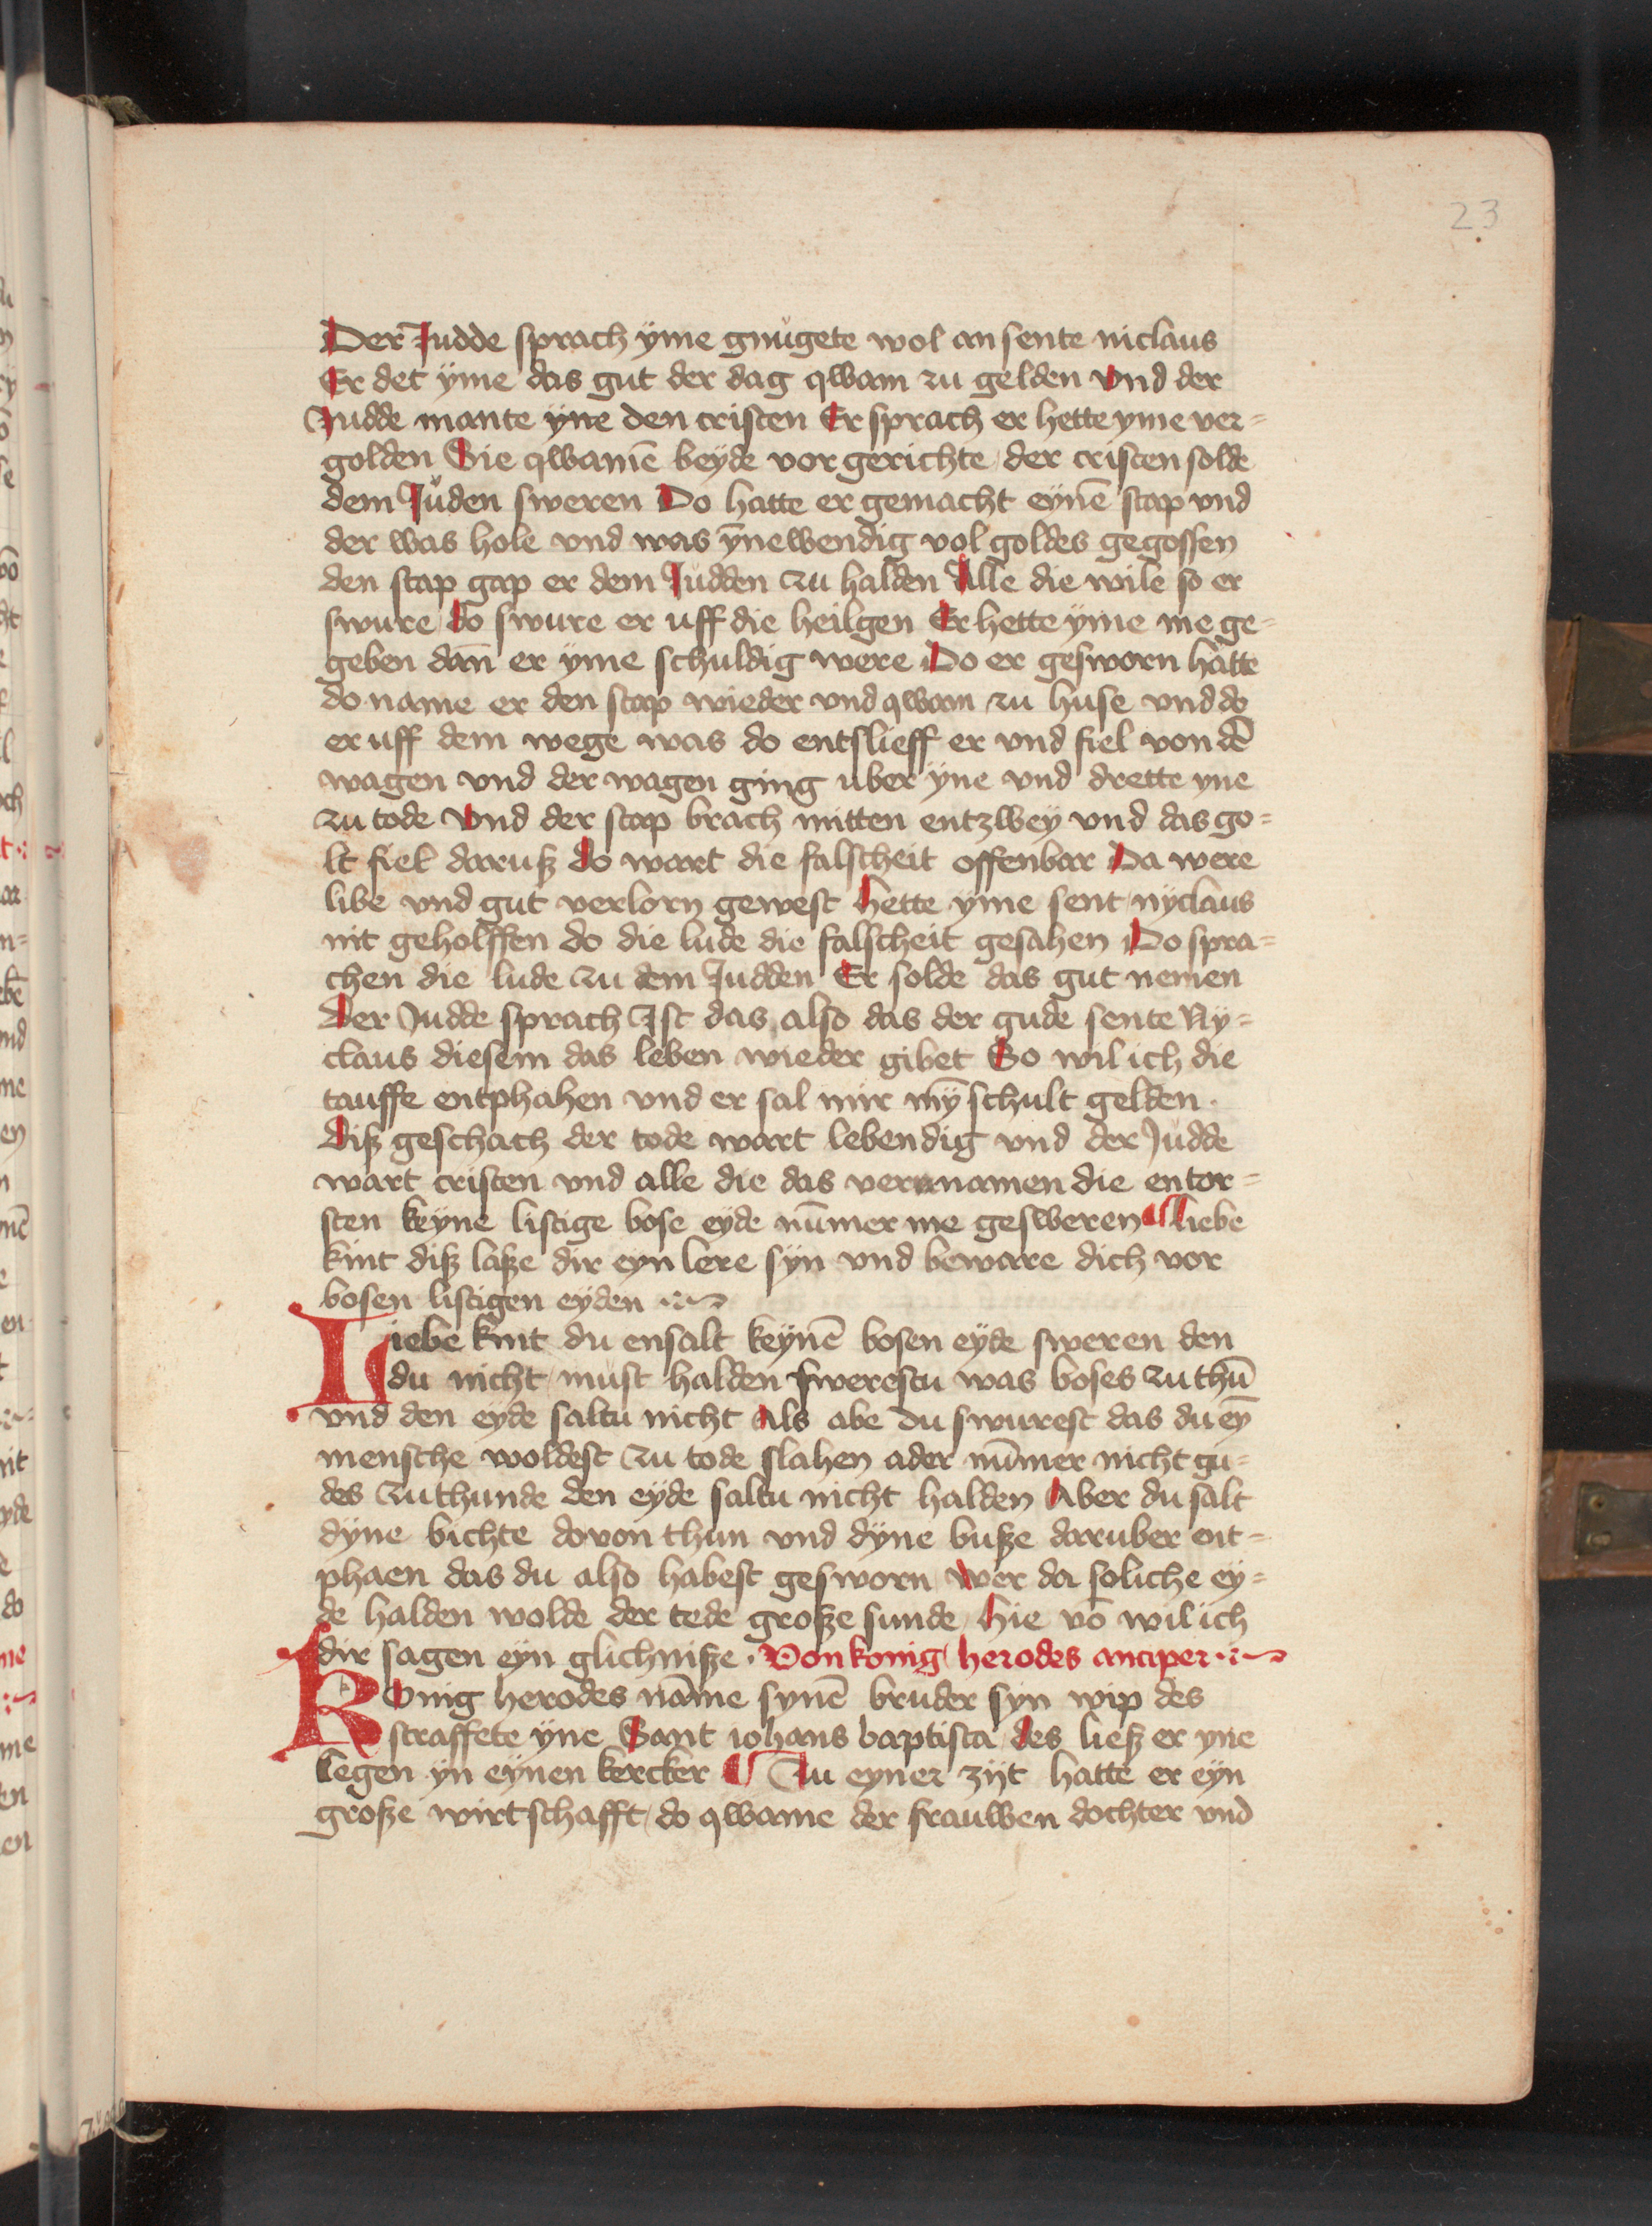 23
Der Judde sprach ÿme gnůgete wol an sente niclaus
Er det ÿme das gut der dag qwam zu gelden vnd der
Judde mante ÿne den cristen Er sprach er hette yme ver=
golden Sie qwamē beyde vor gerichte der cristen solde
dem Jůden sweren Do hatte er gemacht eynē stap vnd
der was hole vnd was ȳnewendig vol goldes gegossen
den stap gap er dem Jůdden zu halden Alle die wile so er
swure do swure er uff die heilgen Er hette ÿme me ge=
geben dañ er ÿme schuldig were Do er gesworn hatte
do name er den stap wieder vnd qwam zu huse vnd do
er uff dem wege was do entslieff er vnd fiel von dē
wagen vnd der wagen ging uber ÿne vnd drette yne
zu tode vnd der stap brach mitten entzwey vnd das go=
lt fiel daruß do wart die falscheit offenbar Da were
libe vnd gut verlorn gewest hette yme sent nyclaus
nit geholffen do die lude die falscheit gesahen Do spra=
chen die lude zu dem Judden Er solde das gut nemen
Der Judde sprach Ist das also das der gude sente Ny=
claus diesem das leben wieder gibet So wil ich die
tauffe entphahen vnd er sal mir mȳ schult gelden.
Diß geschach der tode wart lebendig vnd der Jůdde
wart cristen vnd alle die das vernamen die entor=
sten keyne listige bose eyde nūmer me gesweren ¶ Liebe
kint diß laße dir eyn lere syn vnd beware dich vor
bosen listigen eyden
Liebe kint du ensalt keynē bosen eyde sweren den
du nicht must halden swerestu was boses zu thū
vnd den eyde saltu nicht Als abe du swurest das du eȳ
mensche woldest zu tode slahen ader nūmer nicht gu=
des zu thunde den eyde saltu nicht halden Aber du salt
dÿne bichte dovon thun vnd dÿne buße daruber ent=
phaen das du also habest gesworn wer da soliche ey=
de halden wolde der tede große sunde hie vō wil ich
dir sagen eyn glichniße. Von konig herodes anciper
KOnig herodes nāme synē bruder syn wip des
straffete ÿne Sant iohans baptista des ließ er yne
legen yn eynen kercker ¶ Zu eyner zijt hatte er eyn
große wirtschafft do qwame der frauwen dochter vnd